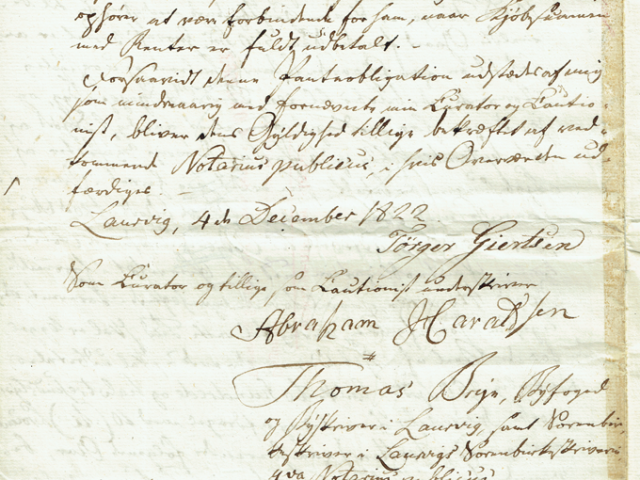 ophører at vær forbindende for ham, naar Kjøbsummen
med Renter er fuldt udbetalt. -
Forsaavidt denne Panteobligation udstædes af mig
som mindreaarig med fornævnte min Curator og Cautio-
nist, bliver dens Gyldighed tillige bekræftet af ved-
kommende Notarius publicus, i hvis Overværelse ud-
færdiges. -
Laurvig, 4de December 1822
Törger Giertsen
Som Curator og tillige, som Cautionist underskriver
Abraham Haraldsen
Thomas Bryn, Byfoged
og Byskriver i Laurvig, samt Sorenbir-
keskriver i Laurvigs Sorenbirkeskriveri
qva Notarius publicus